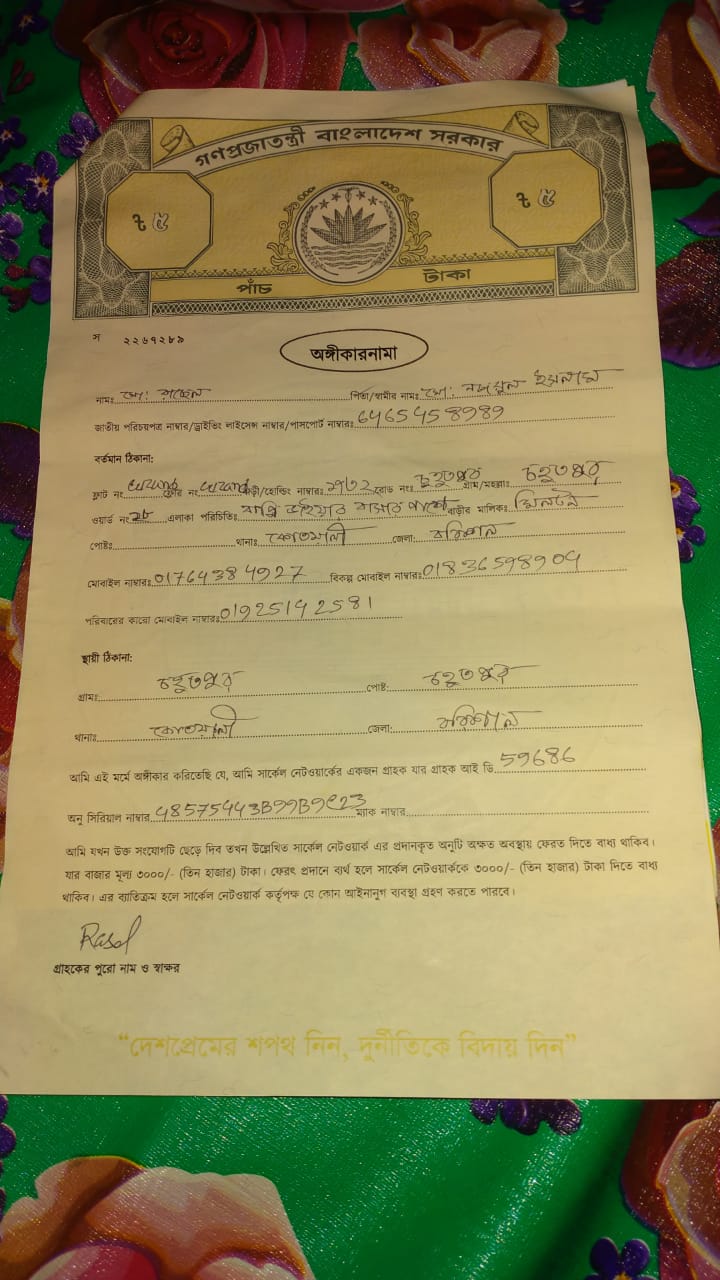 গণপ্রজাতন্ত্রী বাংলাদেশ সরকার
৳ ৫ ৳ ৫
পাঁচ টাকা
স ২২৬৭২৮৯
অঙ্গীকারনামা
নামঃ মো: রাসেল পিতা/স্বামীর নামঃ মো: ইসলাম
জাতীয় পরিচয়পত্র নাম্বার/ড্রাইভিং লাইসেন্স নাম্বার/পাসপোর্ট নাম্বারঃ 6465458989
বর্তমান ঠিকানা:
ফ্লাট নং ফ্লোর নং বাড়ী/হোল্ডিং নাম্বারঃ রোড নংঃ গ্রাম/মহল্লাঃ
ওয়ার্ড নংঃ 28 এলাকা পরিচিতিঃ বাসার পাশে বাড়ীর মালিকঃ মিলটন
পোষ্টঃ থানাঃ কোতয়ালী জেলা: বরিশাল
মোবাইল নাম্বারঃ 01764384927 বিকল্প মোবাইল নাম্বারঃ 01836598904
পরিবারের কারো মোবাইল নাম্বারঃ 01925142581
স্থায়ী ঠিকানা:
গ্রামঃ পোষ্ট:
থানাঃ কোতয়ালী জেলা: বরিশাল
আমি এই মর্মে অঙ্গীকার করিতেছি যে, আমি সার্কেল নেটওয়ার্কের একজন গ্রাহক যার গ্রাহক আই ডি 59686
অনু সিরিয়াল নাম্বার ম্যাক নাম্বার
আমি যখন উক্ত সংযোগটি ছেড়ে দিব তখন উল্লেখিত সার্কেল নেটওয়ার্ক এর প্রদানকৃত অনুটি অক্ষত অবস্থায় ফেরত দিতে বাধ্য থাকিব।
যার বাজার মূল্য ৩০০০/- (তিন হাজার) টাকা। ফেরৎ প্রদানে ব্যর্থ হলে সার্কেল নেটওয়ার্ককে ৩০০০/- (তিন হাজার) টাকা দিতে বাধ্য
থাকিব। এর ব্যতিক্রম হলে সার্কেল নেটওয়ার্ক কর্তৃপক্ষ যে কোন আইনানুগ ব্যবস্থা গ্রহণ করতে পারবে।
Rasel
গ্রাহকের পুরো নাম ও স্বাক্ষর
“দেশপ্রেমের শপথ নিন, দুর্নীতিকে বিদায় দিন”